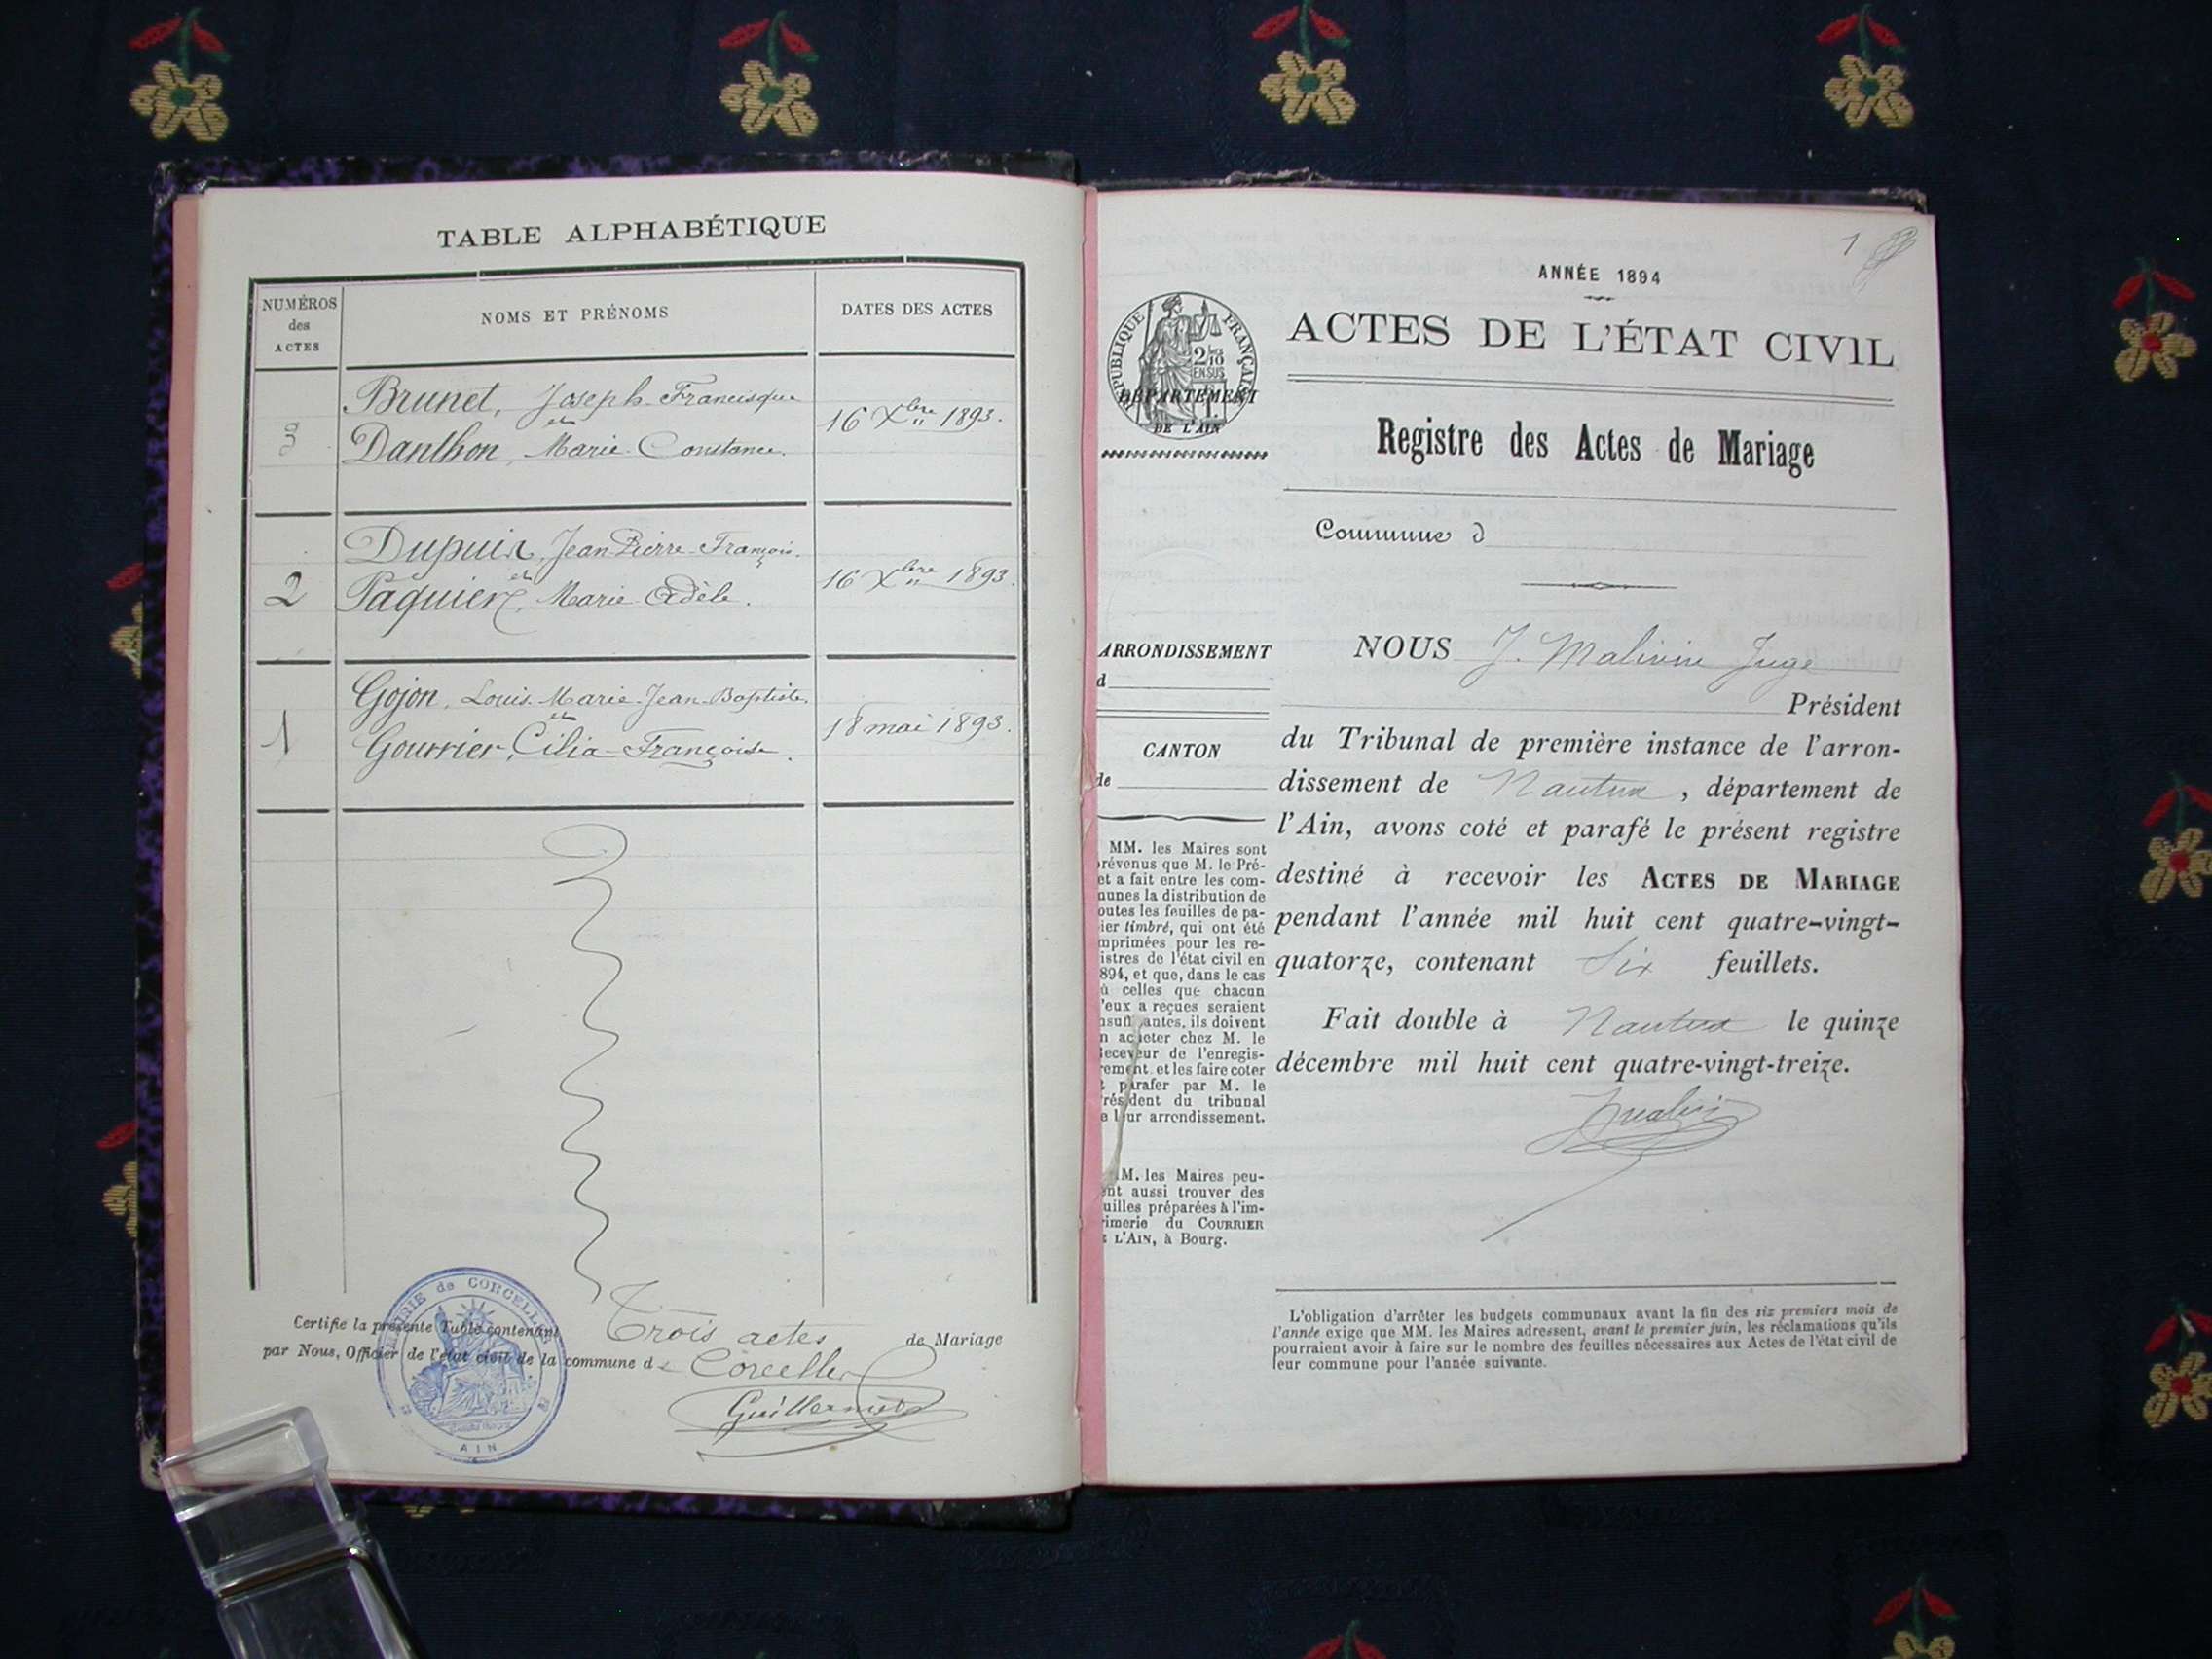 TABLE ALPHABÉTIQUE
NUMÉROS
des
ACTES
NOMS ET PRÉNOMS
DATES DES ACTES
3
Brunet, Joseph Francisque
et
Danthon, Marie Constance.
16 Xbre 1893.
2
Dupuis, Jean Pierre François.
et
Paquier, Marie Adèle.
16 Xbre 1893.
1
Gojon, Louis Marie Jean Baptiste
et
Gourrier, Cilia Françoise.
18 mai 1893.
Certifie la présente Table contenant Trois actes de Mariage
par Nous, Officier de l'état civil de la commune de Corcelles
Guillermet
MAIRIE de CORCELLES
AIN
1
ANNÉE 1894
ACTES DE L'ÉTAT CIVIL
RÉPUBLIQUE FRANÇAISE
2/10
EN SUS
DÉPARTEMENT
DE L'AIN
Registre des Actes de Mariage
Commune d
ARRONDISSEMENT
d
CANTON
de
MM. les Maires sont
prévenus que M. le Pré-
et a fait entre les com-
munes la distribution de
outes les feuilles de pa-
ier timbré, qui ont été
mprimées pour les re-
istres de l'état civil en
894, et que, dans le cas
ù celles que chacun
'eux a reçues seraient
nsuffisantes, ils doivent
n acheter chez M. le
eceveur de l'enregis-
rement et les faire coter
t parafer par M. le
résident du tribunal
e leur arrondissement.
M. les Maires peu-
ent aussi trouver des
uilles préparées à l'im-
rimerie du COURRIER
E L'AIN, à Bourg.
NOUS J. Malivin Juge
Président
du Tribunal de première instance de l'arron-
dissement de Nantua, département de
l'Ain, avons coté et parafé le présent registre
destiné à recevoir les ACTES DE MARIAGE
pendant l'année mil huit cent quatre-vingt-
quatorze, contenant Six feuillets.
Fait double à Nantua le quinze
décembre mil huit cent quatre-vingt-treize.
L'obligation d'arrêter les budgets communaux avant la fin des six premiers mois de
l'année exige que MM. les Maires adressent, avant le premier juin, les réclamations qu'ils
pourraient avoir à faire sur le nombre des feuilles nécessaires aux Actes de l'état civil de
leur commune pour l'année suivante.